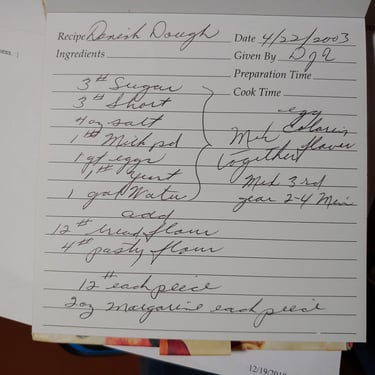 Recipe Danish Dough
Date 4/22/2003
Ingredients
Given By
Preparation Time
Cook Time
3# Sugar
3# Short
4oz salt
1# Milk pd
1 qt eggs
1# Yeast
1 gal Water
egg
coloring
flavor
Mix
together
Mix 3rd
gear 2-4 Min
add
12# bread flour
4# pastry flour
12# each piece
2oz margarine each piece
12/19/201